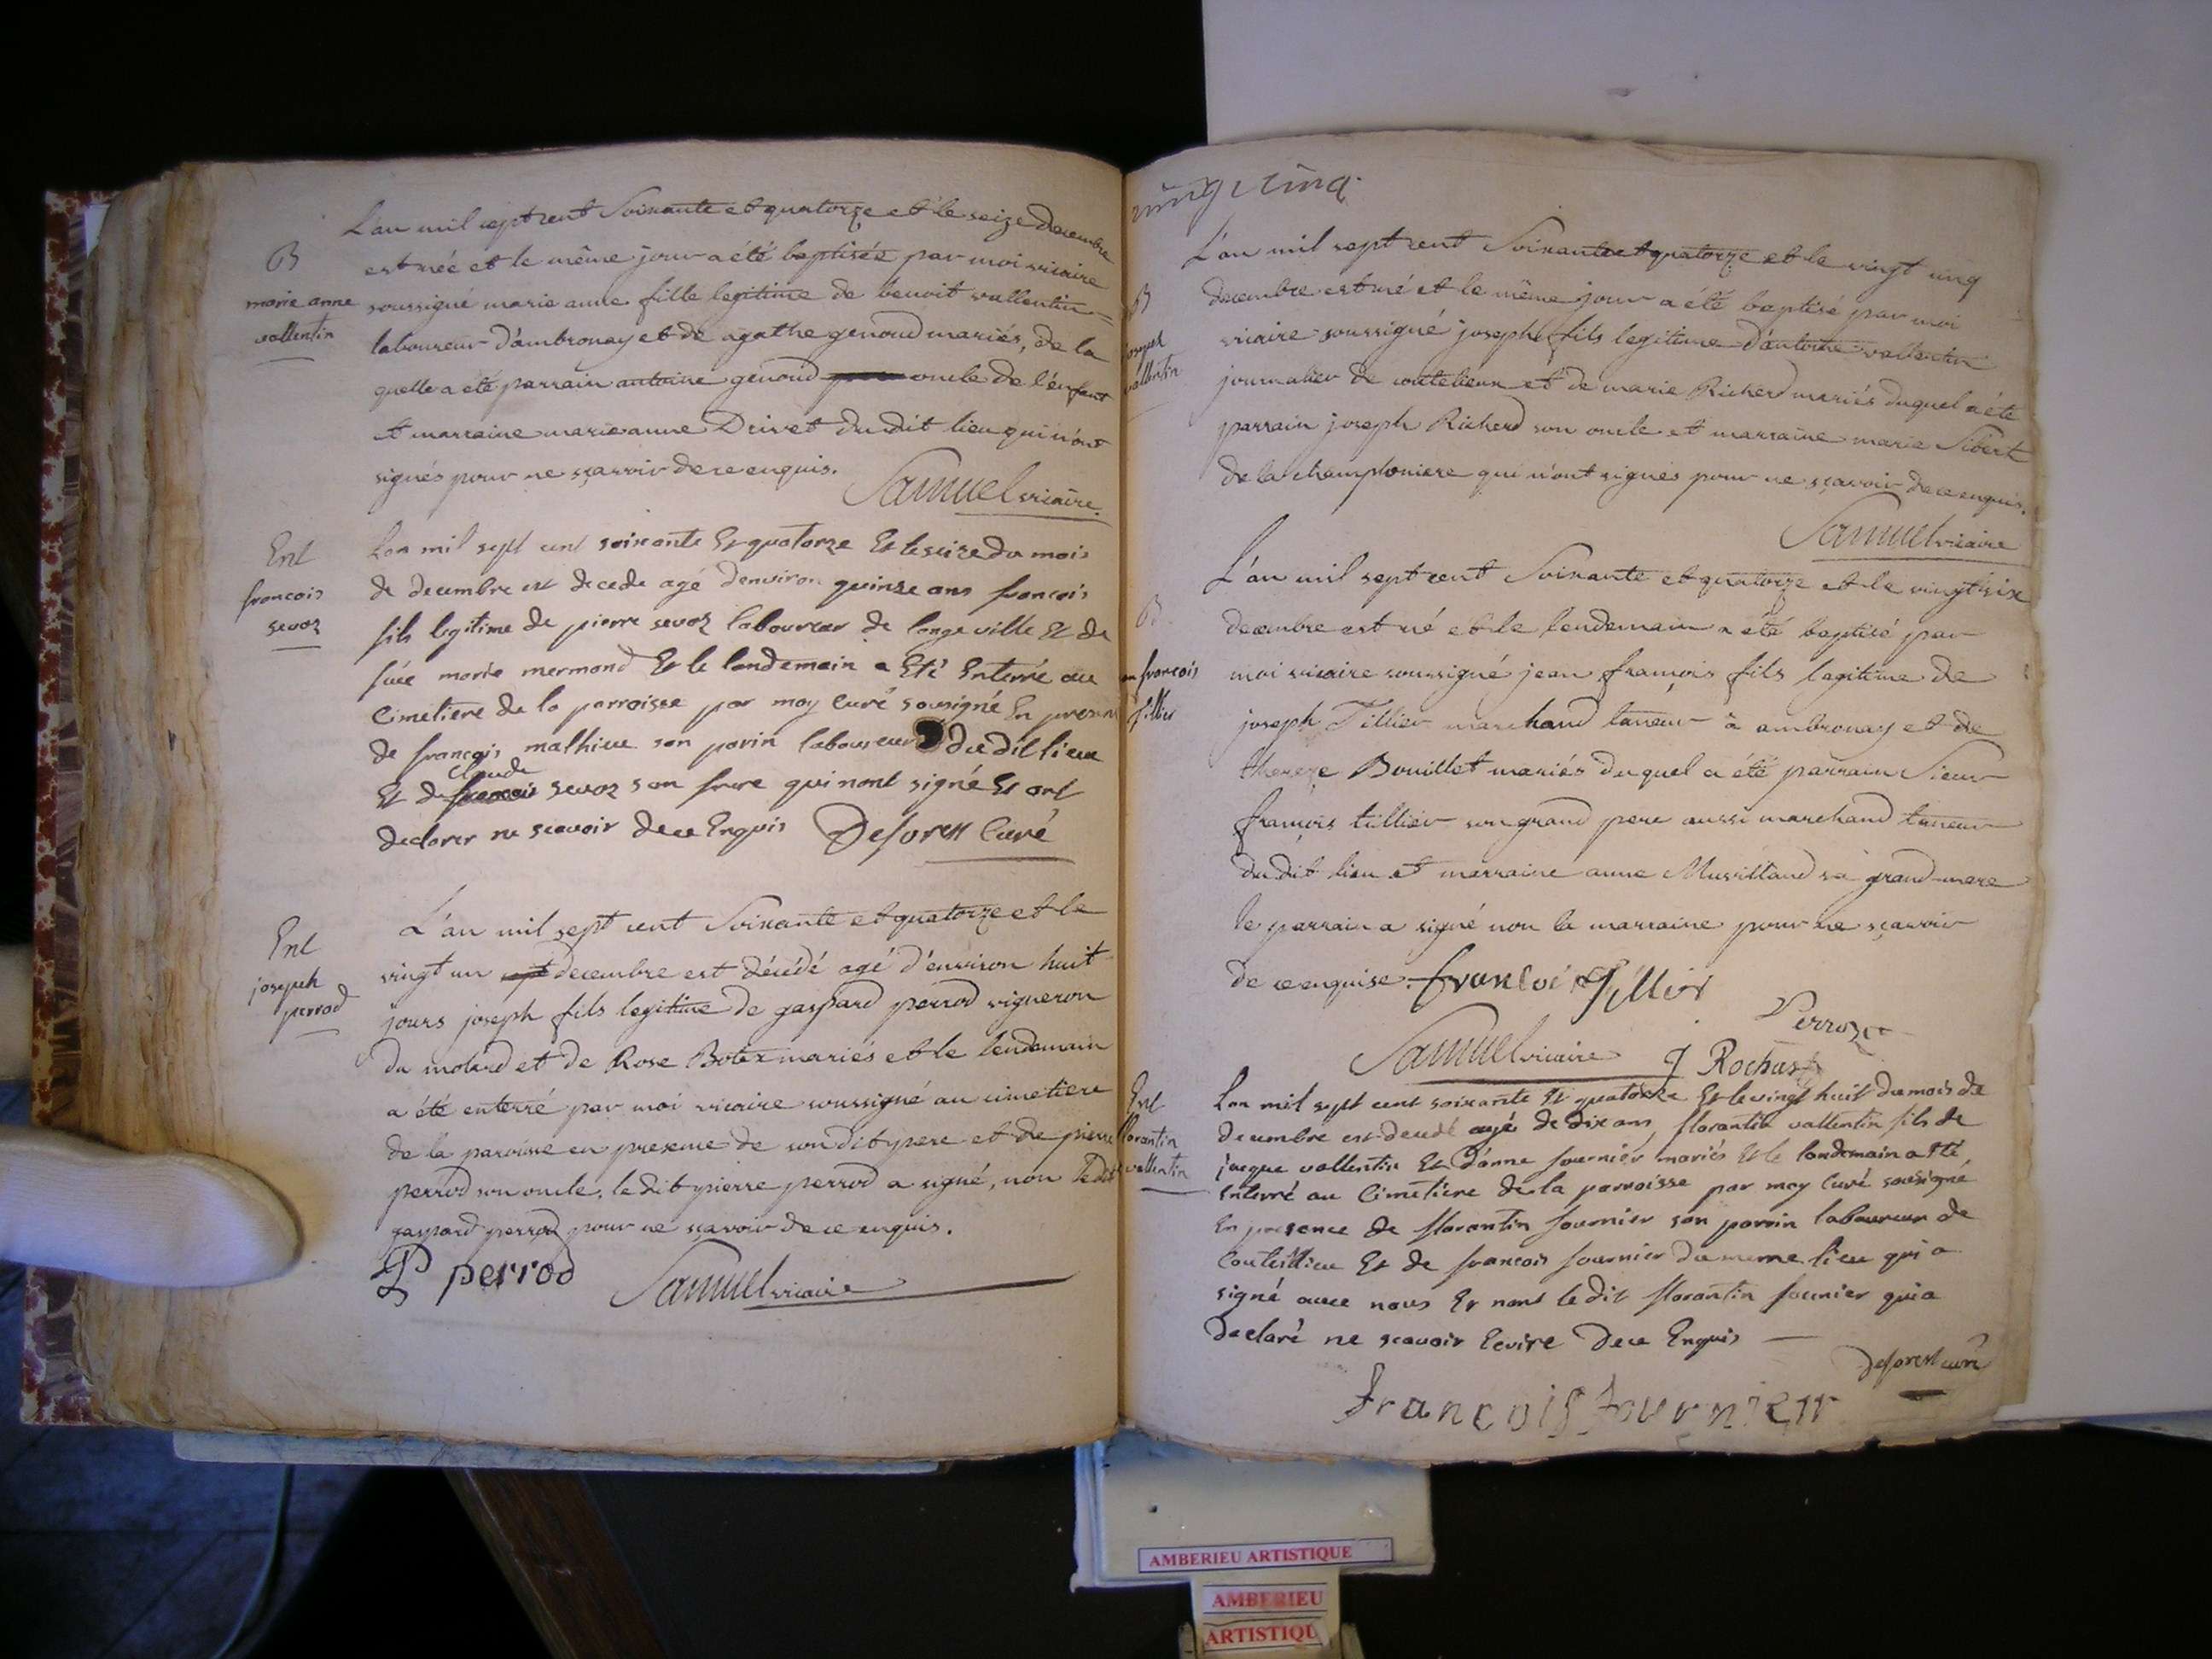 L'an mil sept cent Soixante et quatorze et le seize decembre
B
est née et le même jour a été baptisée par moi vicaire
marie anne
vallentin
soussigné marie anne fille legitime de benoit vallentin
laboureur d'ambronay et de agathe genoud mariés, de la
quelle a été parrain antoine genoud oncle de l'enfant
et marraine marie anne Drivet du dit lieu qui n'ont
signés pour ne sçavoir de ce enquis.
Samuel vicaire.
Ent
francois
sevoz
Lan mil sept cent soixante Et quatorze Et le seize du mois
de decembre est decede agé denviron quinze ans francois
fils legitime de pierre sevoz laboureur de longeville Et de
fuée marie mermond Et le landemain a Eté Enterré au
Cimetiere de la parroisse par moy Curé sousigné En presence
de françois mathieu son parin laboureur du dit lieu
claude
Et de francois sevoz son frere qui nont signé Et ont
declarer ne scavoir de ce Enquis Deforest Curé
Ent
joseph
perrod
L'an mil sept cent Soixante et quatorze et le
vingt un decembre est décédé agé d'environ huit
jours joseph fils legitime de gaspard perrod vigneron
du molard et de Rose Botex mariés et le lendemain
a été enterré par moi vicaire soussigné au cimetiere
de la paroisse en presence de son dit pere et de pierre
perrod son oncle, le dit pierre perrod a signé, non le dit
gaspard perrod pour ne sçavoir de ce enquis.
P perrod Samuel vicaire
vingt cinq.
L'an mil sept cent Soixante et quatorze et le vingt cinq
B
joseph
vallentin
decembre est né et le même jour a été baptisé par moi
vicaire soussigné joseph fils legitime d'antoine vallentin
journalier de coutelieux et de marie Richerd mariés duquel a été
parrain joseph Richerd son oncle et marraine marie Sibert
de la championiere qui n'ont signés pour ne sçavoir de ce enquis.
Samuel vicaire
L'an mil sept cent Soixante et quatorze et le vingt six
B
francois
tillier
decembre est né et le lendemain a été baptisé par
moi vicaire soussigné jean françois fils legitime de
joseph Tillier marchand taneur à ambronay et de
thereze Bouillet mariés duquel a été parrain Sieur
françois tillier son grand pere aussi marchand taneur
du dit lieu et marraine anne Mussilland sa grand-mere
le parrain a signé non la marraine pour ne sçavoir
de ce enquise. francoi Tillier
Perrozet
Samuel vicaire J Rochas
Ent
florantin
vallentin
Lan mil sept cent soixante Et quatorze Et le vingt huit du mois de
decembre est decedé agé de dix ans, florantin vallentin fils de
jacque vallentin Et d'anne fournier mariés Et le landemain a Eté
Enterré au Cimetiere de la parroisse par moy Curé sousigné
En presence de florantin fournier son parrin laboureur de
Coutelieu Et de francois fournier du meme lieu qui a
signé avec nous Et nont le dit florantin fournier qui a
declaré ne scavoir Ecrire de ce Enquis
Deforest curé
francois fournier
AMBERIEU ARTISTIQUE
AMBERIEU
ARTISTIQU